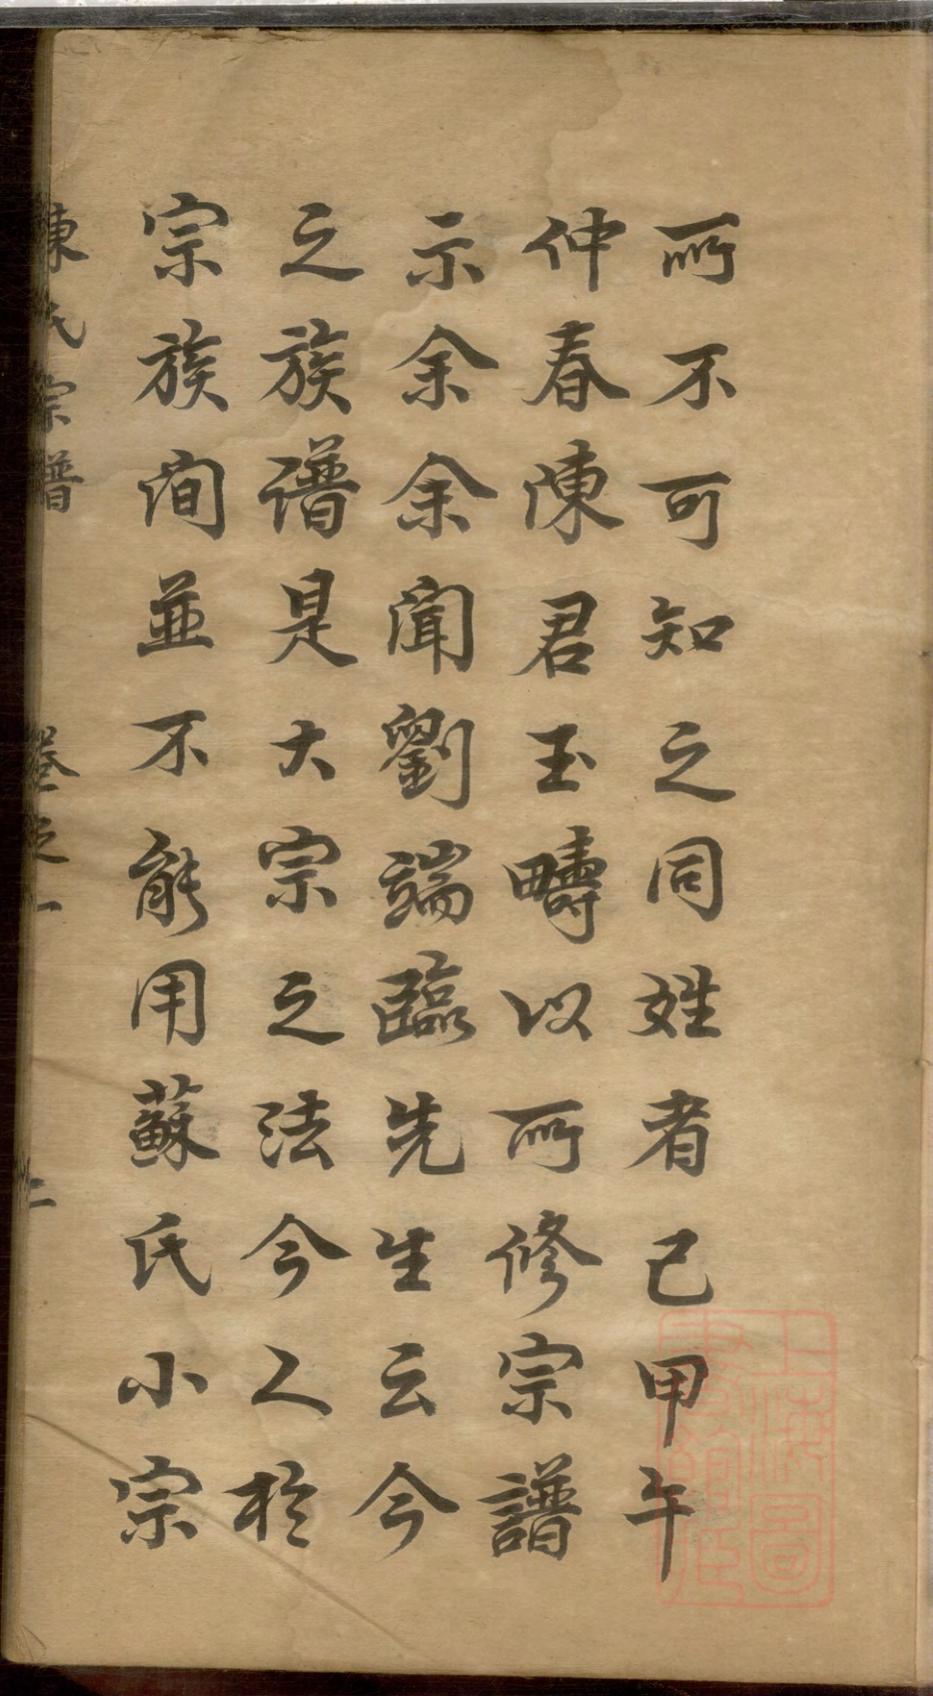 所不可知之同姓者已甲午
仲春陳君玉疇以所修宗譜
示余余聞劉端臨先生云今
之族譜是大宗之法今人於
宗族間並不能用蘇氏小宗
陳氏宗譜 卷之一 二